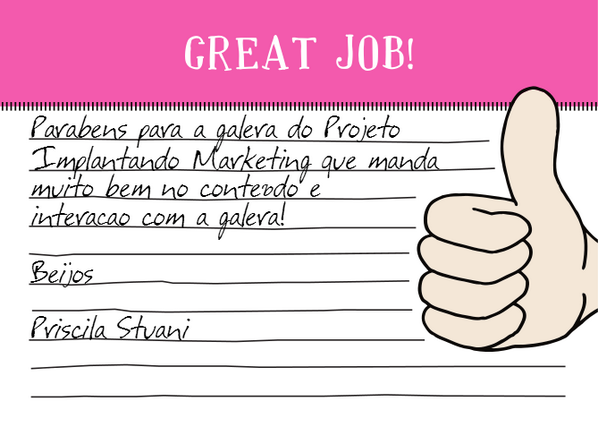 GREAT JOB!
Parabens para a galera do Projeto
Implantando Marketing que manda
muito bem no conteudo e
interacao com a galera!
Beijos
Priscila Stuani